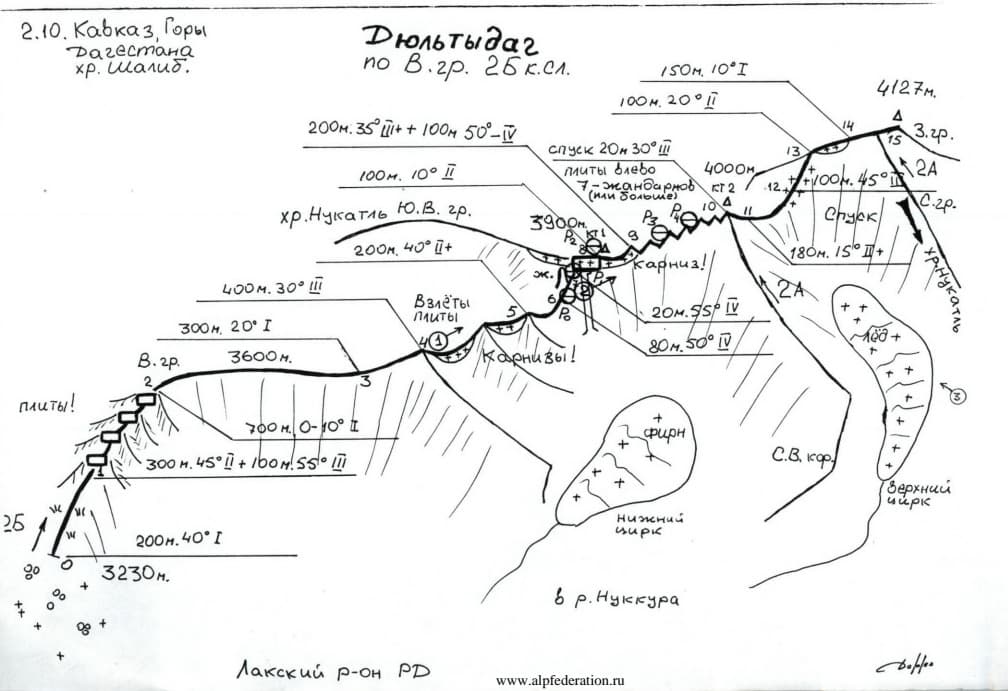 2.10. Кавказ, Горы
Дагестана
хр. Шалиб.
Дюльтыдаг
по В.гр. 2Б к.сл.
150м. 10° I
100м. 20° II
4127м.
200м. 35° III+ + 100м 50° -IV
спуск 20м 30° III
плиты влево
7-жандармов
(или больше)
4000м
КТ2
14
15
З.гр.
13
12
2А
+100м. 45° III
С.гр.
100м. 10° II
хр. Нукатль Ю.В. гр.
3900м.
КТ1
P2
P3
P4
8
9
10
11
Спуск
200м. 40° II+
карниз!
180м. 15° II+
хр. Нукатль
ж.
6
P0
2
400м. 30° III
Взлёты
плиты
5
20м. 55° IV
2А
300м. 20° I
4
1
Карнизы!
80м. 50° IV
Лёд
В.гр.
3600м.
2
3
3
плиты!
700м. 0-10° II
фирн
1
300м. 45° II + 100м. 55° III
С.В. кор.
Верхний
цирк
2Б
нижний
цирк
200м. 40° I
0
3230м.
в р. Нуккура
Лакский р-он РД
www.alpfederation.ru